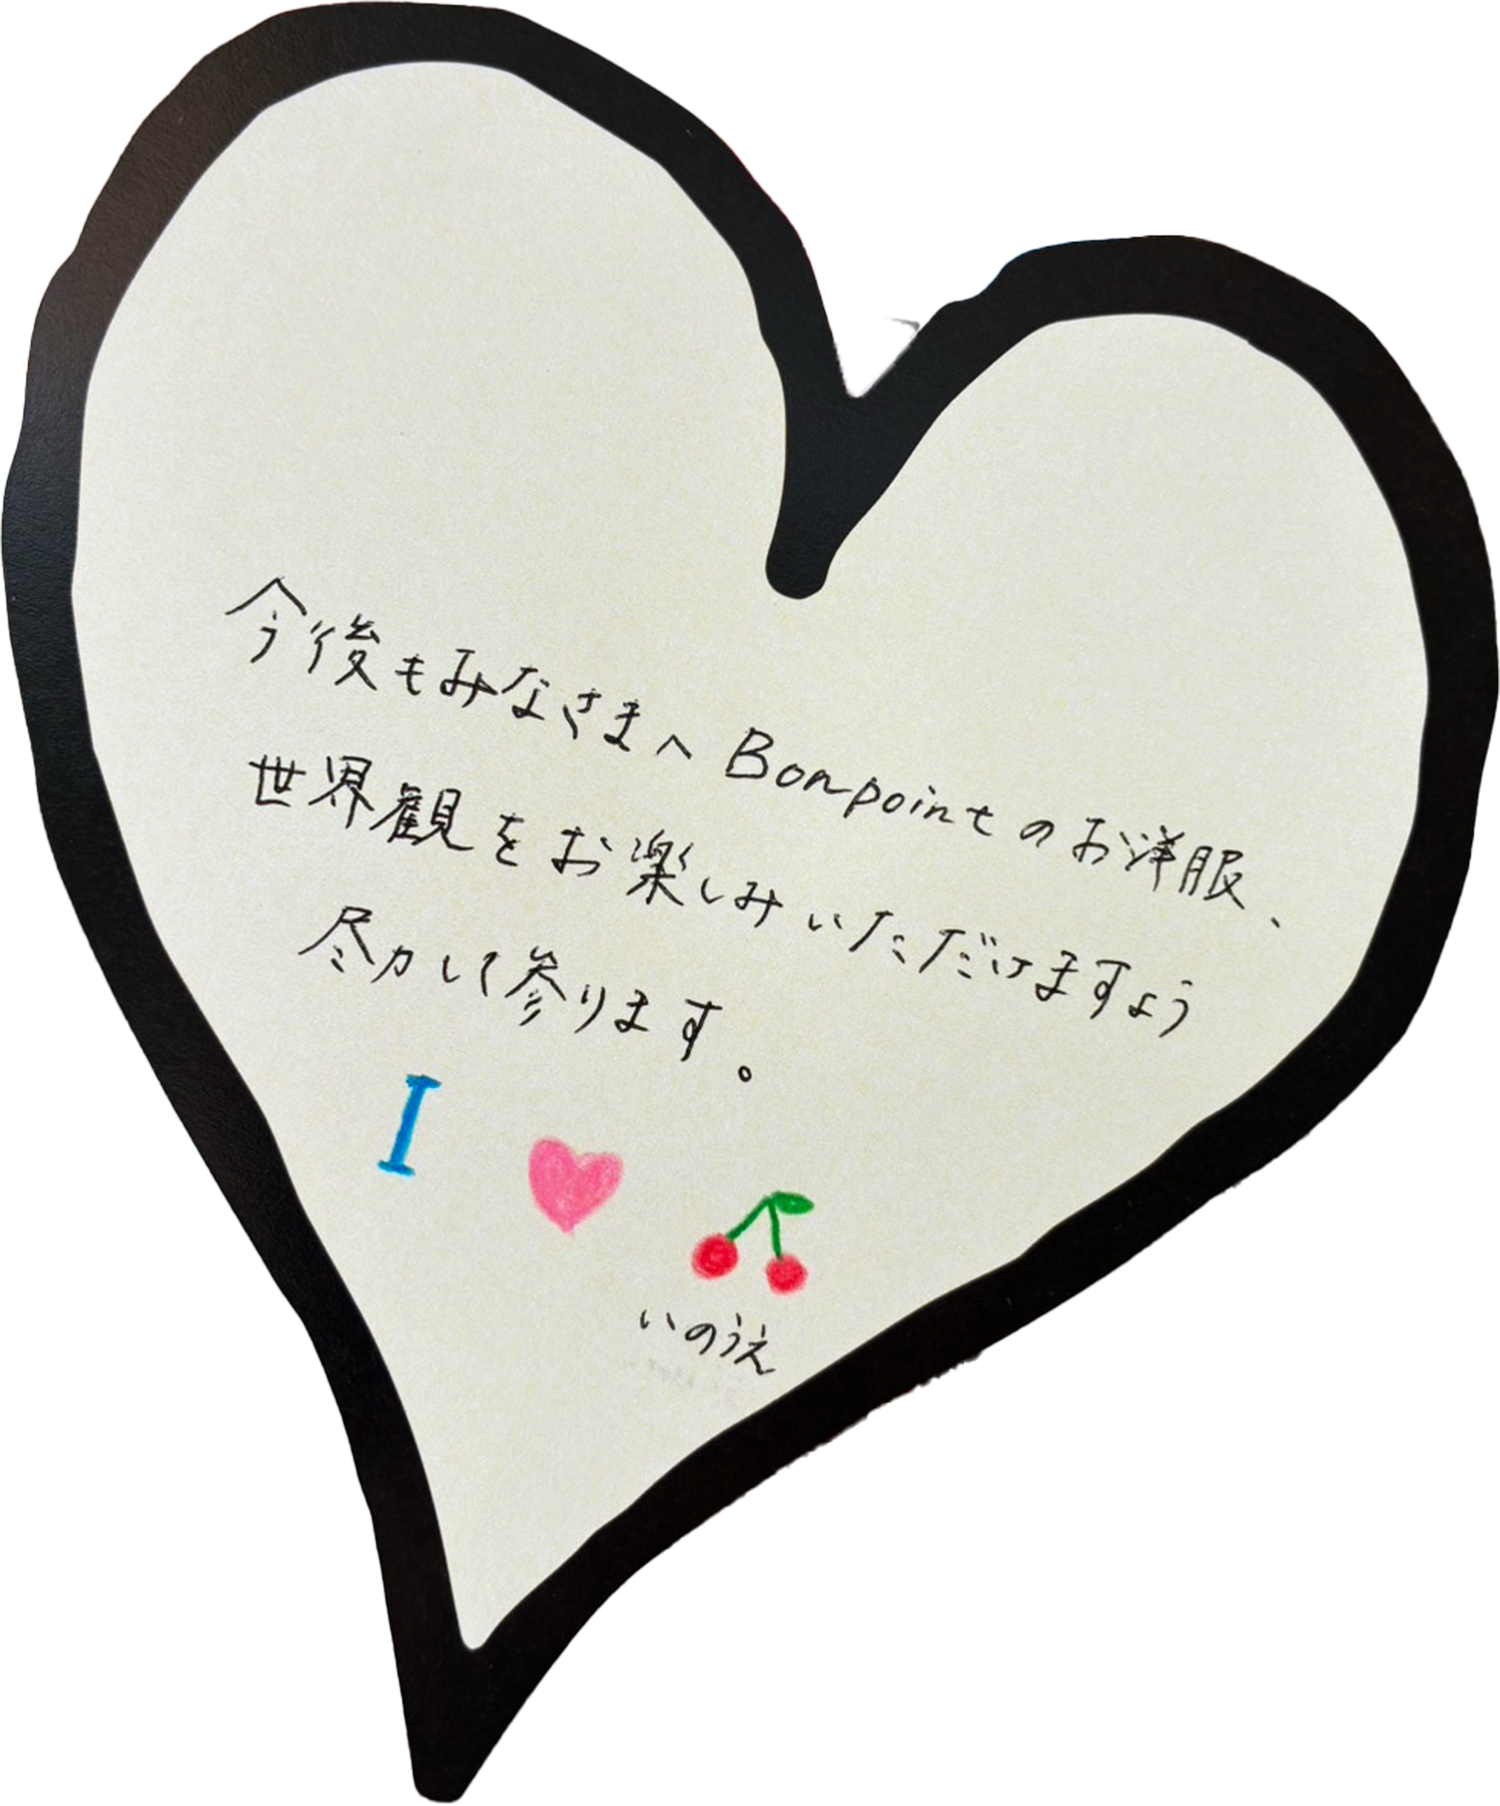 今後もみなさまへBonpointのお洋服、
世界観をお楽しみいただけますよう
尽力して参ります。
I
いのうえ